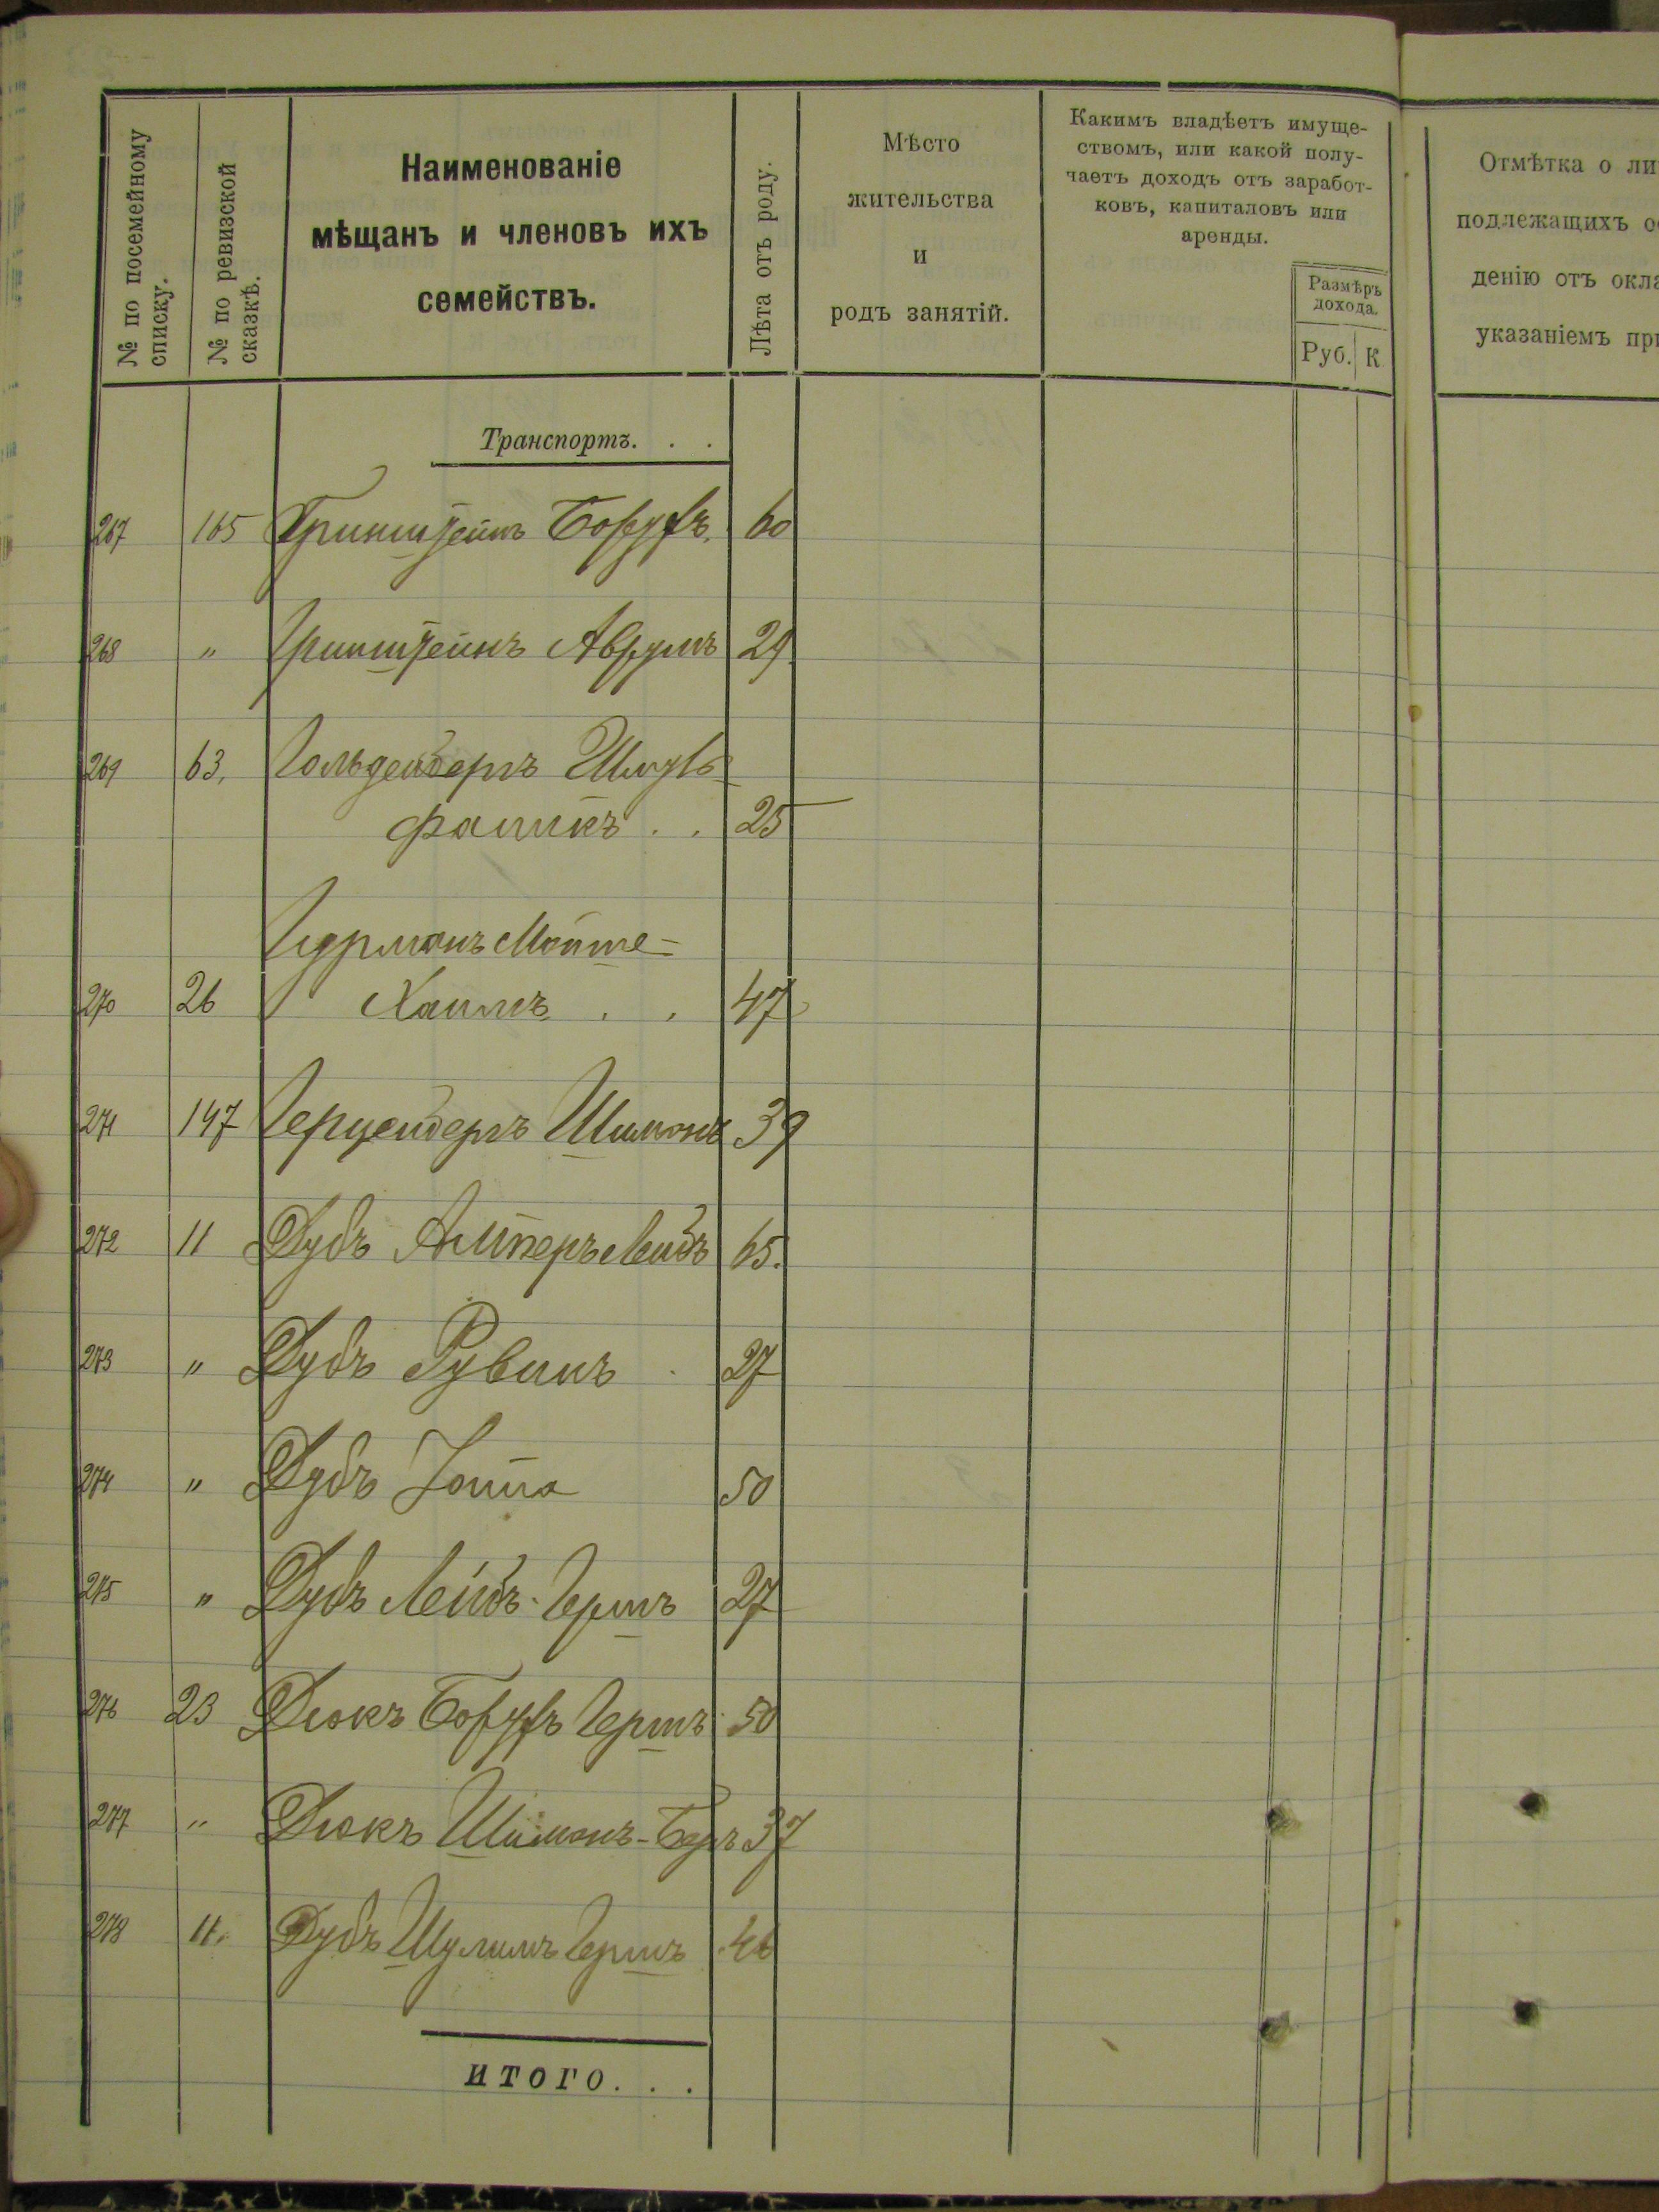 № по посемейному списку.
№ по ревизской сказкѣ.
Наименованіе
мѣщанъ и членовъ ихъ
семействъ.
Лѣта отъ роду.
Мѣсто
жительства
и
родъ занятій.
Какимъ владѣетъ имуще-
ствомъ, или какой полу-
чаетъ доходъ отъ заработ-
ковъ, капиталовъ или
аренды.
Размѣръ
дохода.
Руб. К
Отмѣтка о ли
подлежащихъ ос
денію отъ окла
указаніемъ при
Транспортъ. . .
267 165 Гринштейнъ Борухъ. 60
268 " Гринштейнъ Аврумъ 29
269 63, Гольденбергъ Шмуль-
фаликъ . . 25
Гурманъ Мошке-
270 26 Хаимъ . . 47
271 147 Герценбергъ Шимонъ 39
272 11 Дубъ Альтеръ Лейбъ 65.
273 " Дубъ Рувинъ . 27
274 " Дубъ 50
275 " Дубъ Лейбъ-Гершъ 27
276 23 Дюкъ Борухъ Гершъ 50
277 " Дюкъ Шимонъ-Беръ 37
278 11. Дубъ Шулимъ Гершъ 46
итого. . .